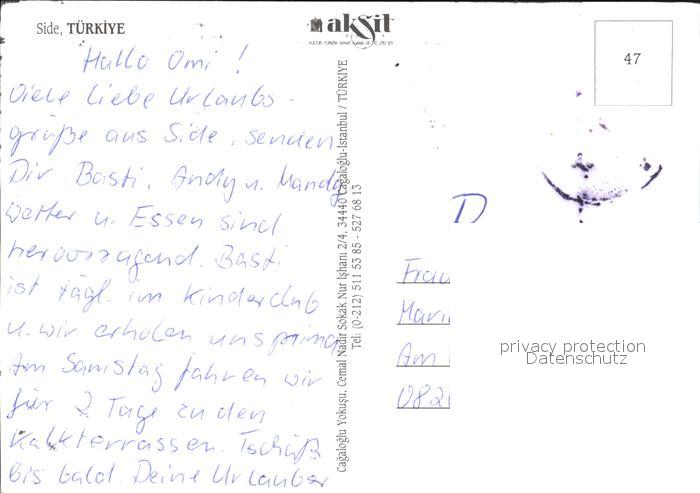 Side, TÜRKİYE
akşit
47
Hallo Omi!
Viele liebe Urlaubs-
grüße aus Side, senden
Dir Basti, Andy u. Mandy
Wetter u. Essen sind
hervorragend. Basti
ist tägl. im Kinderclub
u. wir erholen uns prima
Am Samstag fahren wir
für 2 Tage zu den
Kalkterrassen. Tschüß
bis bald. Deine Urlauber
Cağaloğlu Yokuşu, Cemal Nadir Sokak Nur İşhanı 2/4, 34440 Cağaloğlu-İstanbul / TÜRKİYE
Tel: (0-212) 511 53 85 - 527 68 13
D
Frau
Mari
Am
082
privacy protection
Datenschutz